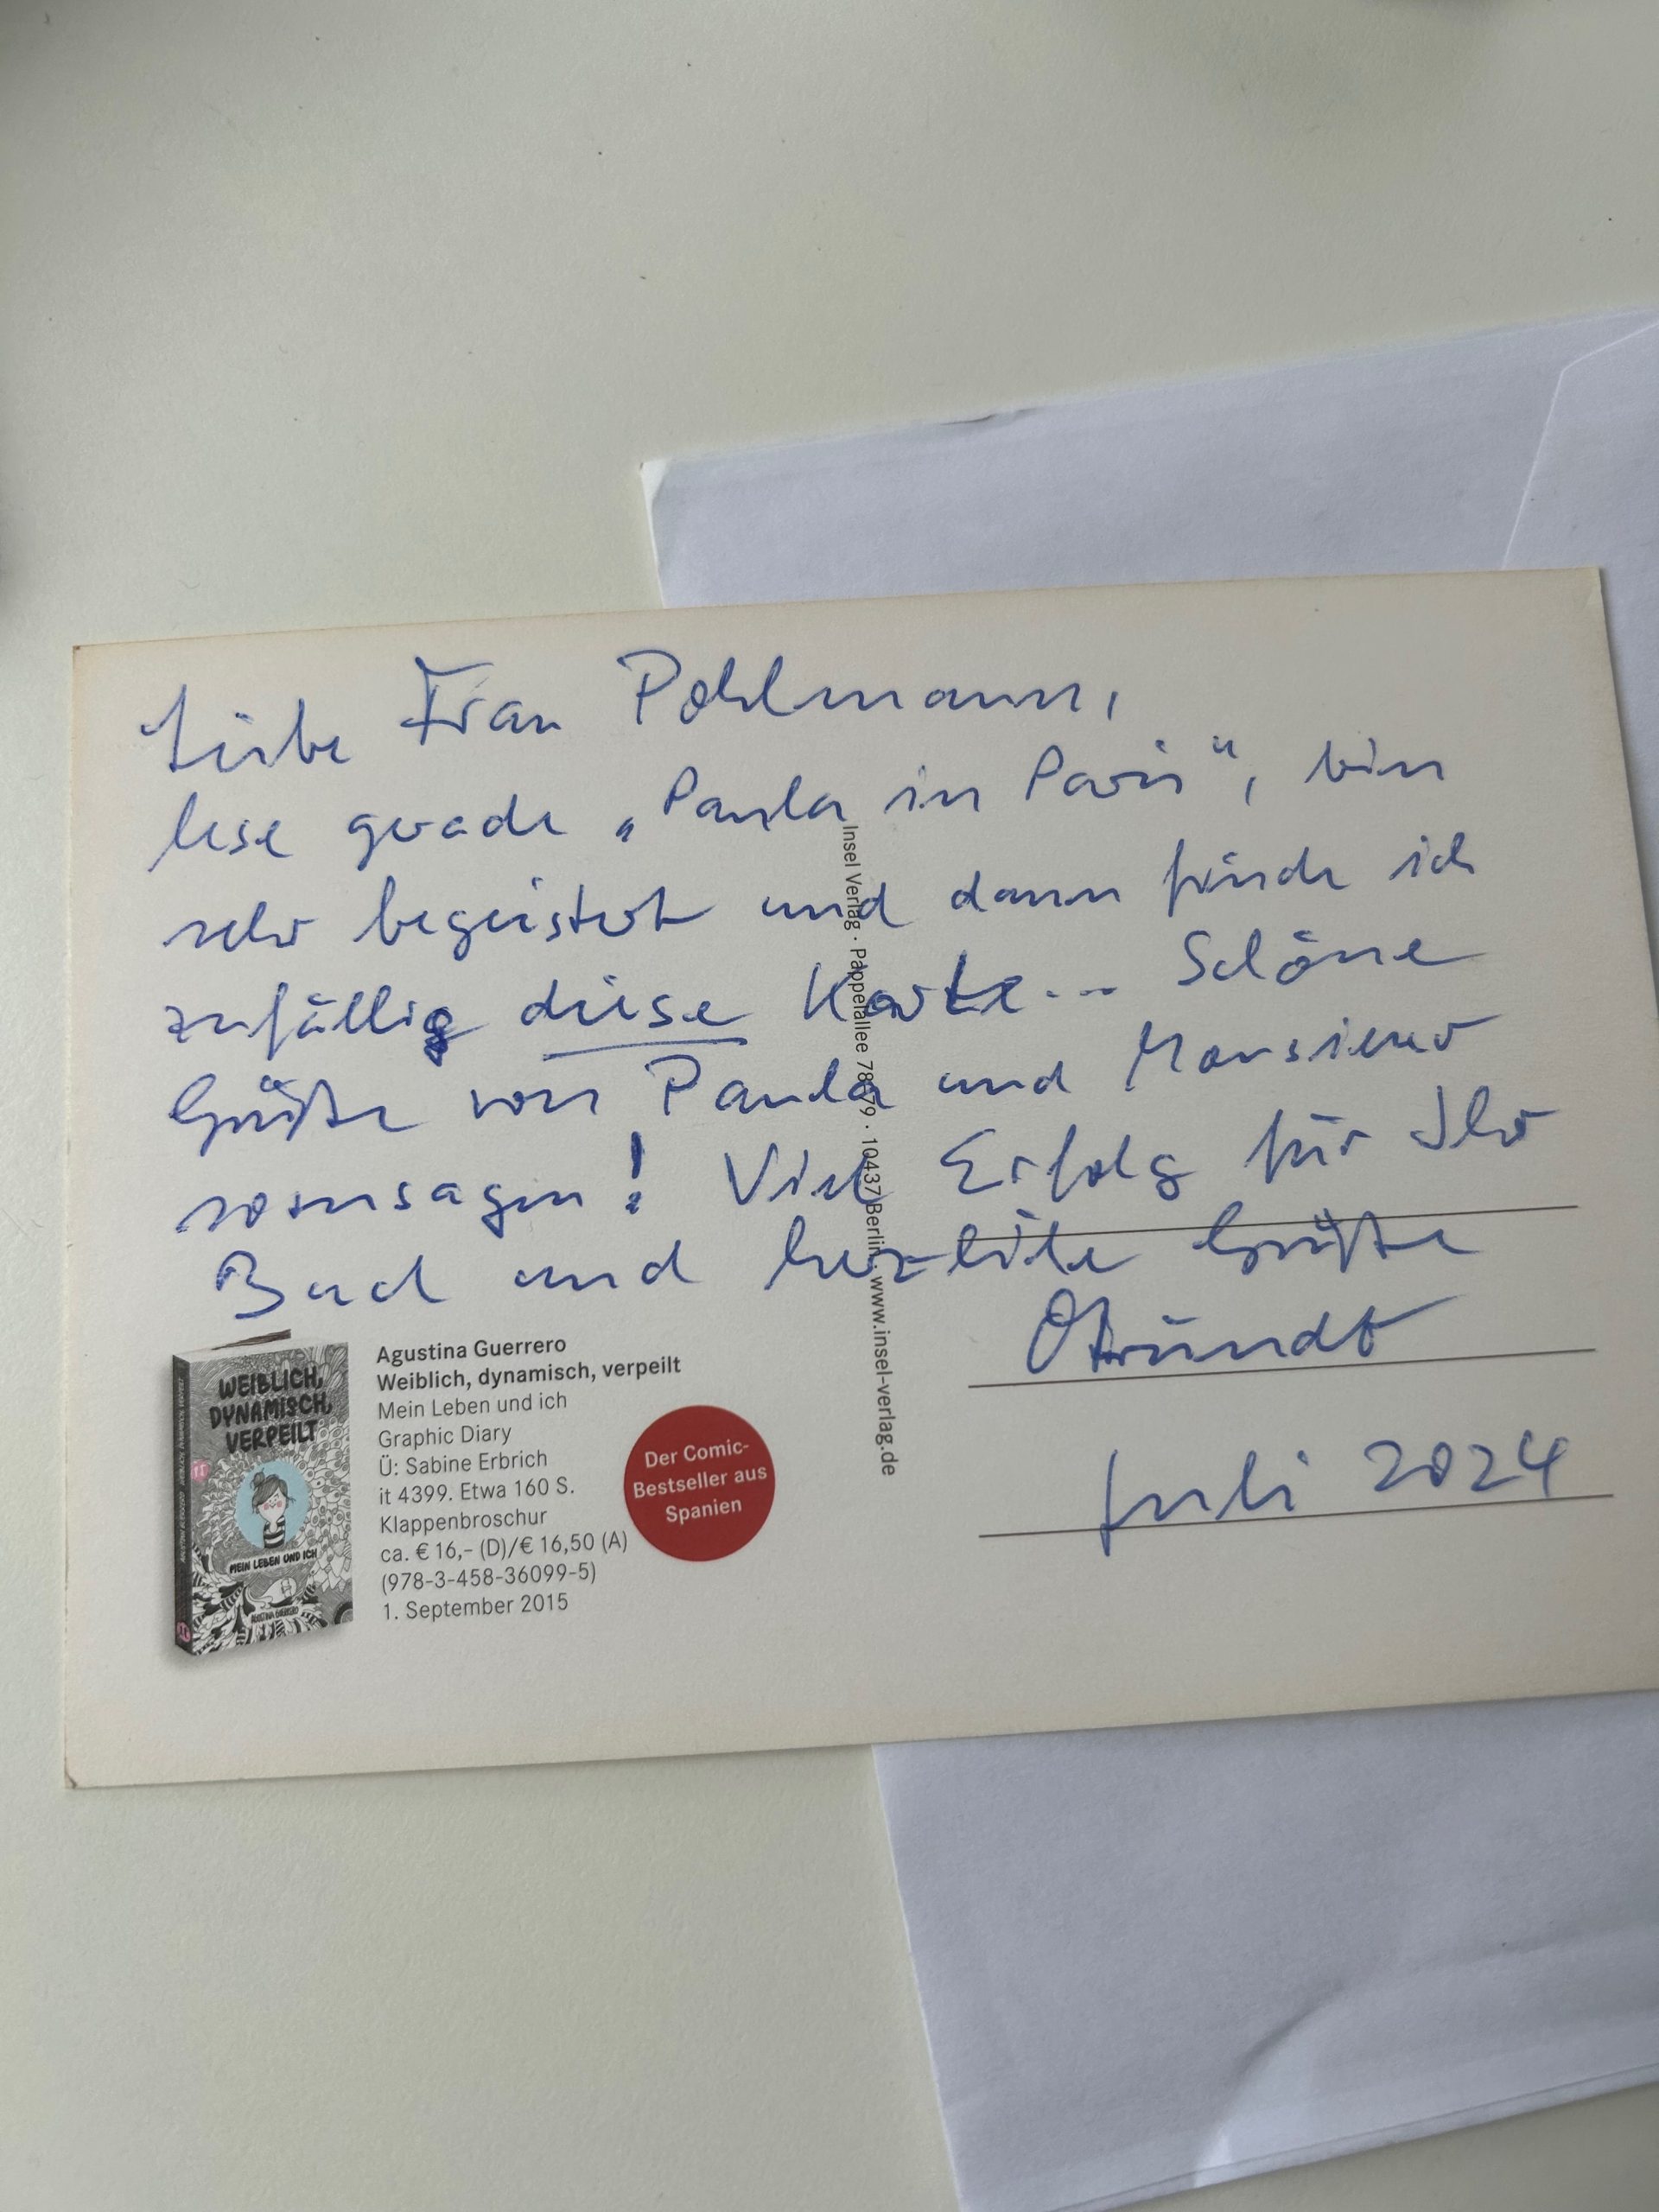 Liebe Frau Pohlmann,
lese gerade „Paula in Paris“, bin
sehr begeistert und dann finde ich
zufällig diese Karte... Schöne
Grüße von Paula und Monsieur
sozusagen! Viel Erfolg für Ihr
Buch und herzliche Grüße
Juli 2024
Insel Verlag · Pappelallee 78-79 · 10437 Berlin · www.insel-verlag.de
WEIBLICH,
DYNAMISCH,
VERPEILT
MEIN LEBEN UND ICH
AGUSTINA GUERRERO
Agustina Guerrero
Weiblich, dynamisch, verpeilt
Mein Leben und ich
Graphic Diary
Ü: Sabine Erbrich
it 4399. Etwa 160 S.
Klappenbroschur
ca. € 16,– (D)/€ 16,50 (A)
(978-3-458-36099-5)
1. September 2015
Der Comic-
Bestseller aus
Spanien